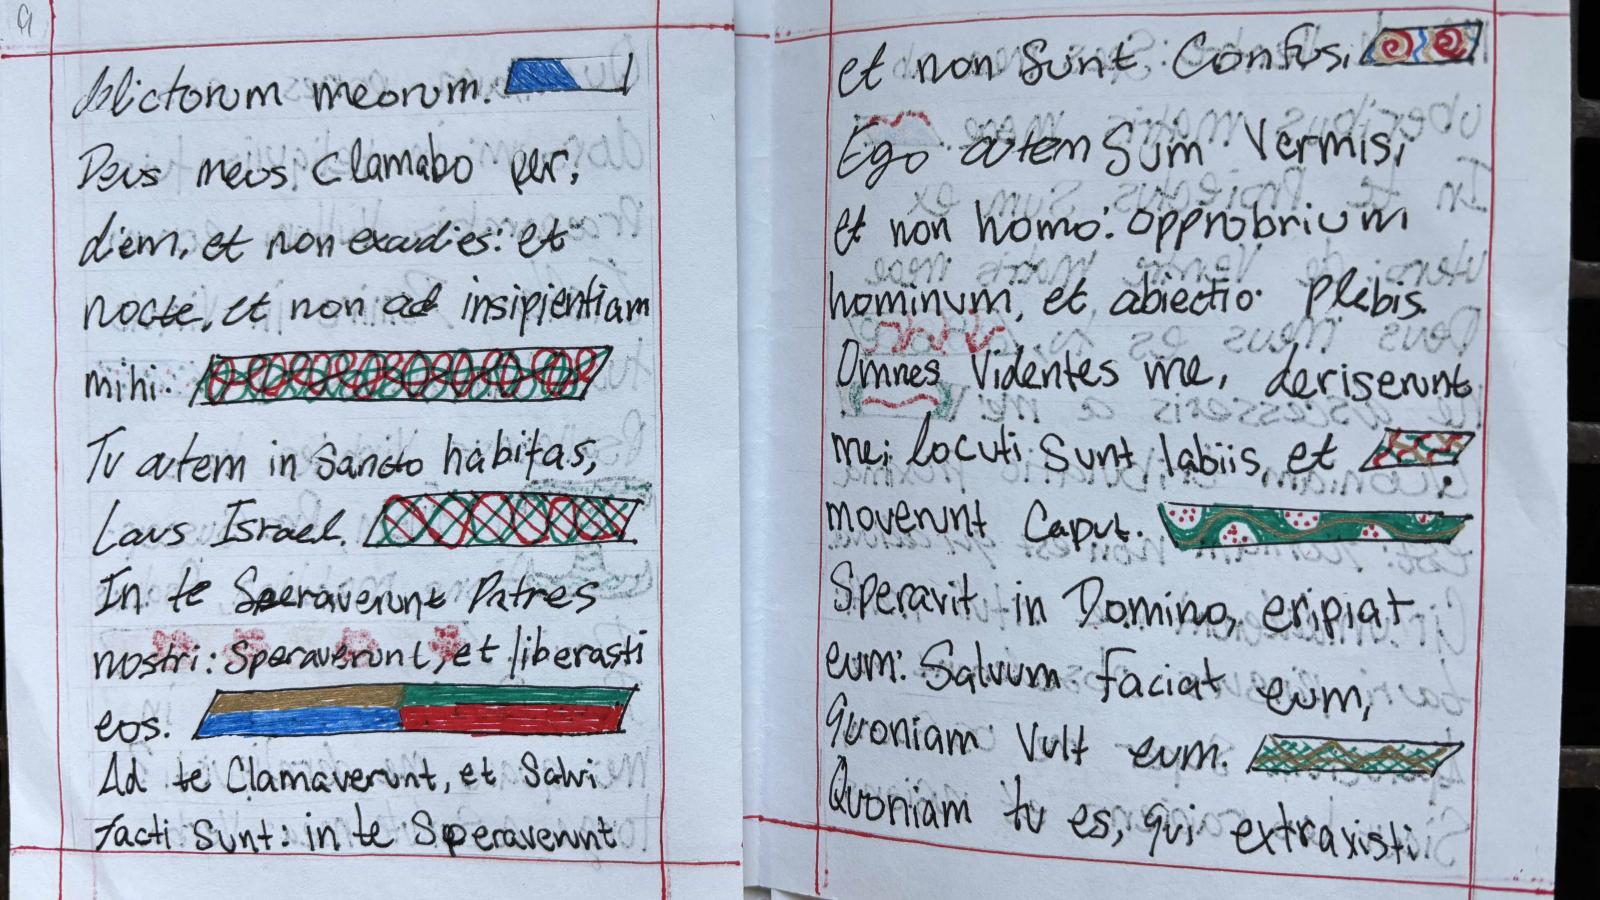 9
delictorum meorum.
Deus meus clamabo per,
diem, et non exaudies: et
nocte, et non ad insipientiam
mihi.
Tu autem in Sancto habitas,
Laus Israel.
In te Speraverunt Patres
nostri: Speraverunt, et liberasti
eos.
Ad te Clamaverunt, et Salvi
facti Sunt: in te Speraverunt
et non Sunt Confusi
Ego autem Sum Vermis,
et non homo: opprobrium
hominum, et abiectio plebis.
Omnes Videntes me, deriserunt
me; locuti Sunt labiis et
moverunt Caput.
Speravit in Domino, eripiat
eum: Salvum faciat eum,
quoniam Vult eum.
Quoniam tu es, qui extraxisti